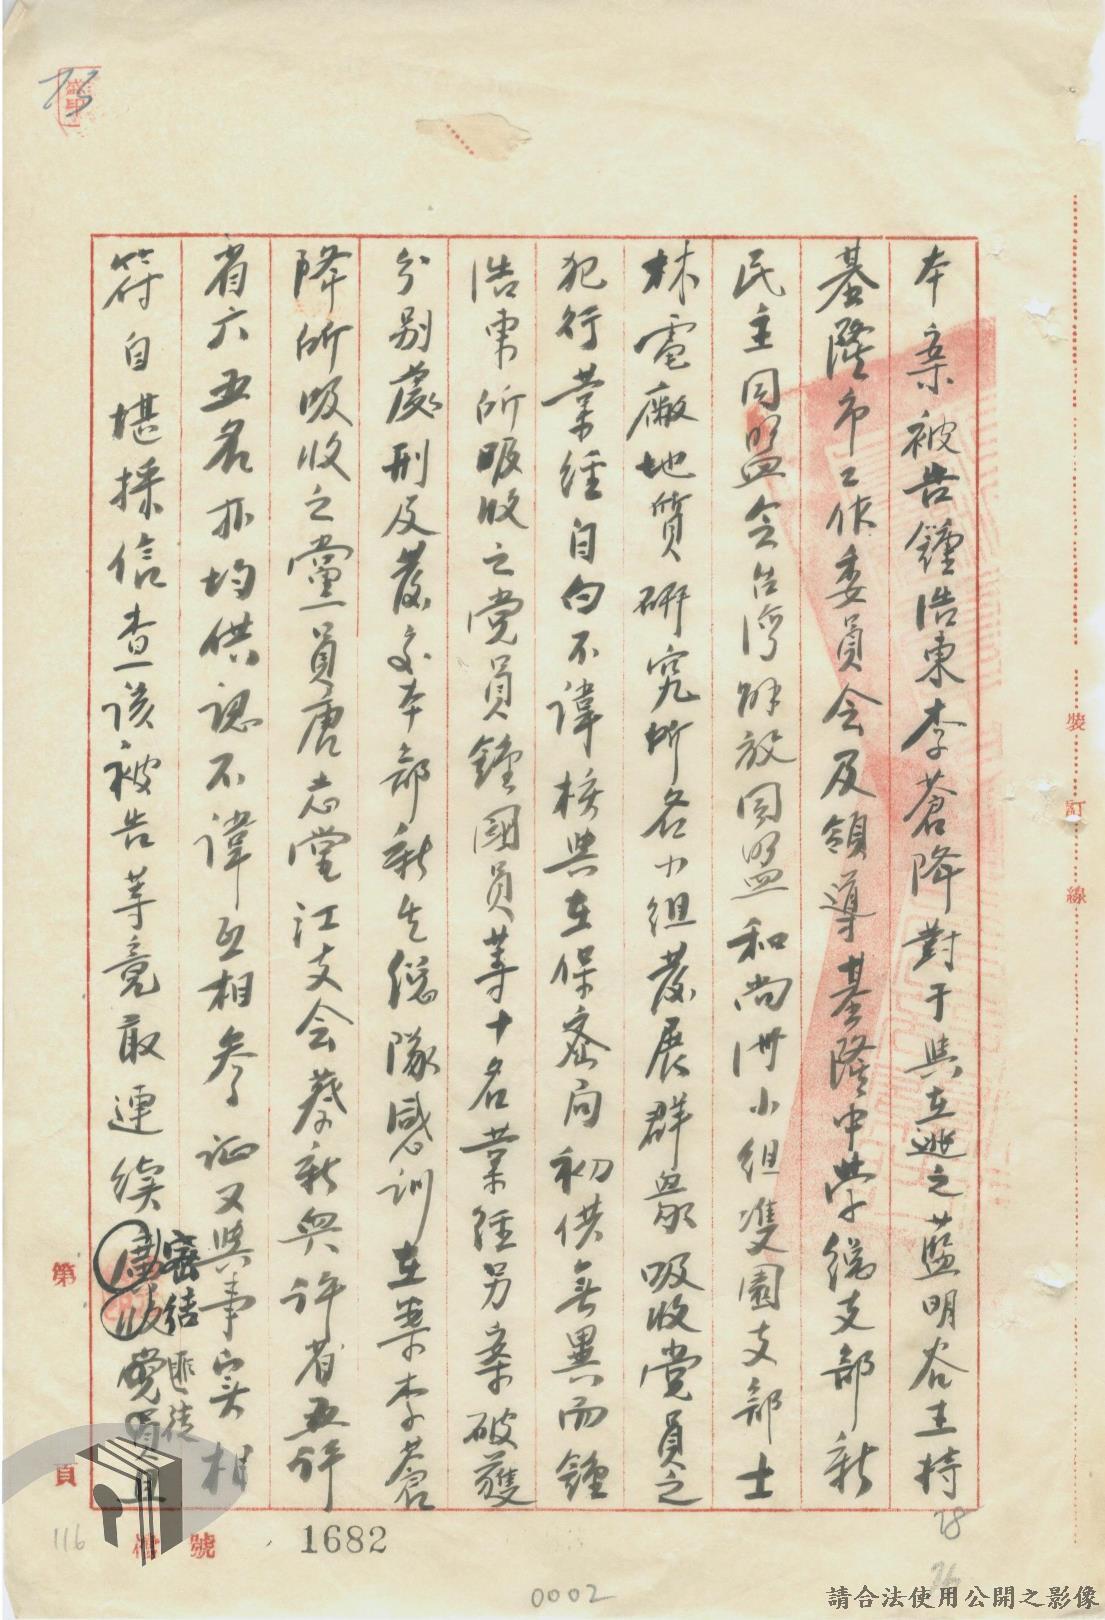 本案被告鍾浩東李蒼降對于與在逃之藍明谷主持
基隆市工作委員会及領導基隆中學総支部新
民主同盟会台湾解放同盟和尚洲小組雙園支部士
林電廠地質研究所各小組發展群衆吸收党員之
犯行業経自白不諱核與在保密局初供無異而鍾
浩東所吸收之党員鍾國員等十名業経另案破獲
分别處刑及發交本部新生総隊感訓在案李蒼
降所吸收之黨員唐志堂江支会蔡新興許省五許
省六五名亦均供認不諱互相參证又與事实相
符自堪採信查該被告等竟敢連续
密結匪徒
党員且
裝訂線
第 頁
檔號
1682
0002
116
78
76
請合法使用公開之影像